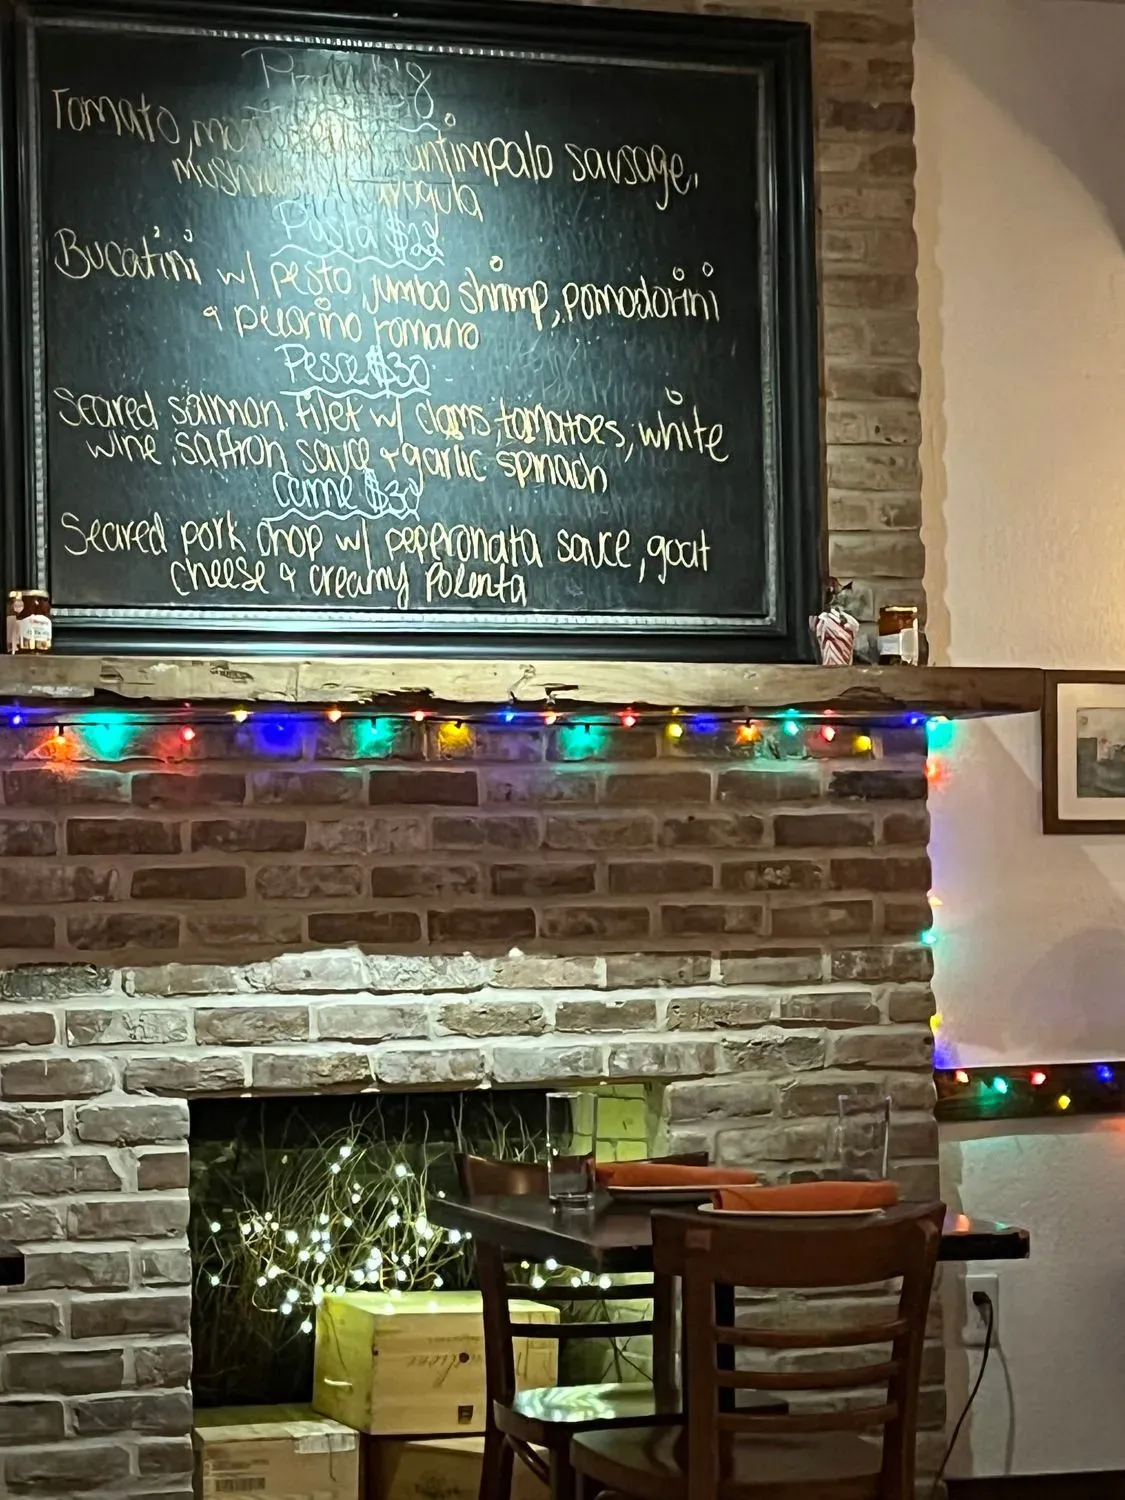 Tomato, antimpalo sausage,
arugula
Pasta $22
Bucatini w/ pesto, jumbo shrimp, pomodorini
& pecorino romano
Pesce $30
Seared salmon filet w/ clams, tomatoes, white
wine, saffron sauce + garlic spinach
Carne $30
Seared pork chop w/ peperonata sauce, goat
cheese & creamy polenta